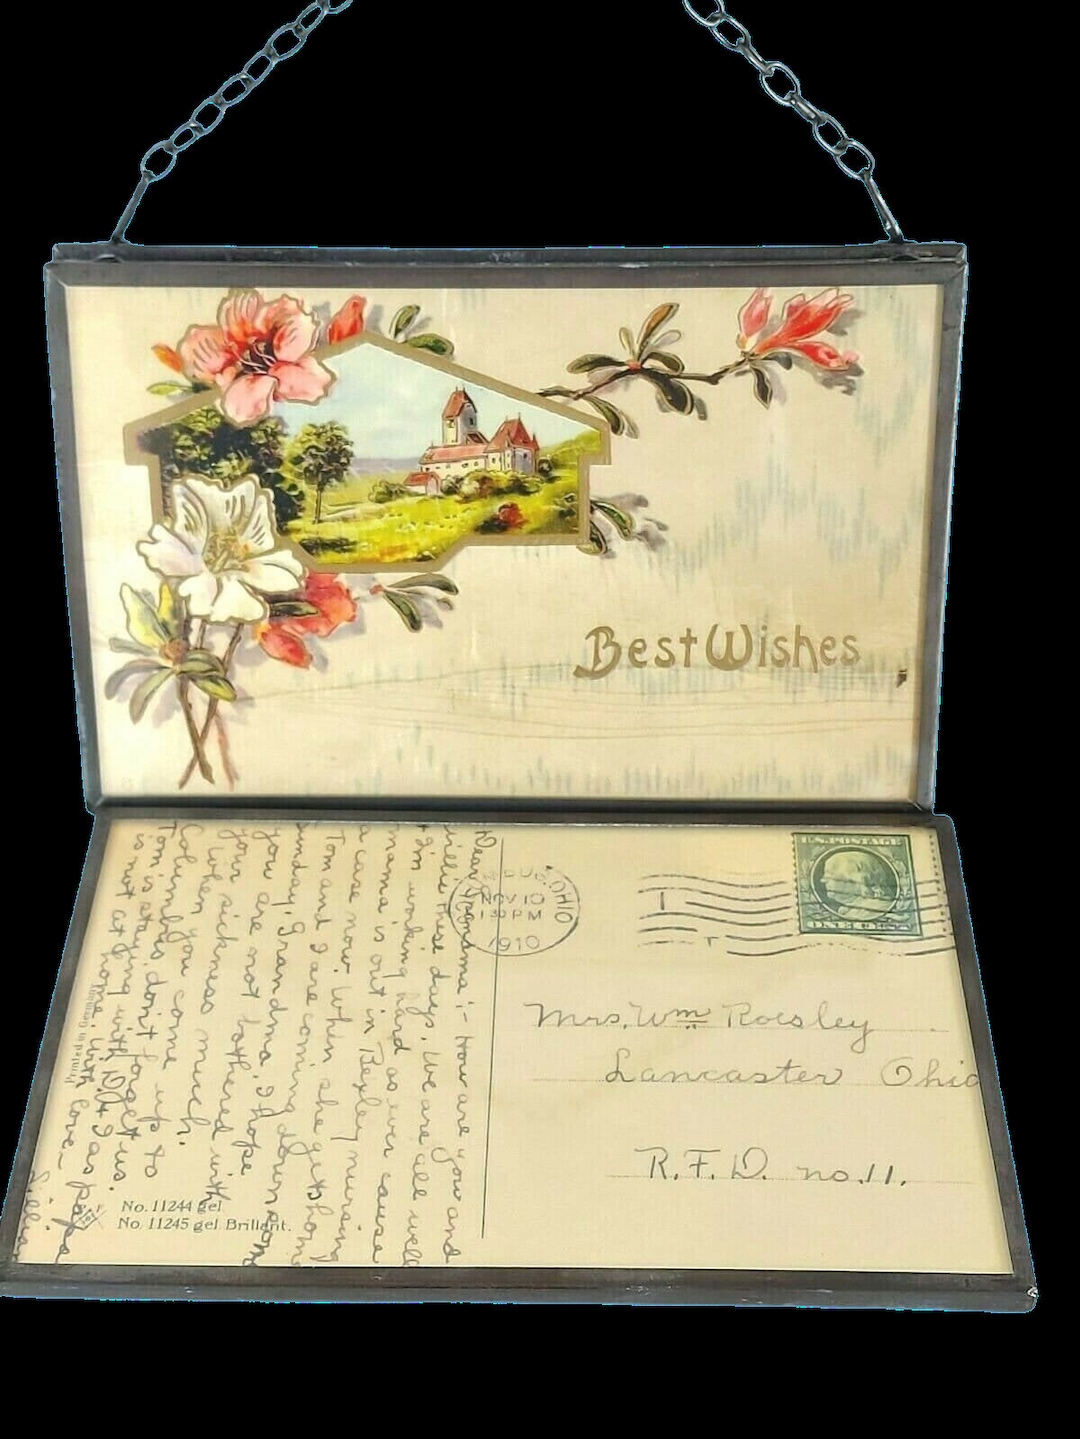 Best Wishes
Dear Gramama:- How are you and
Willie these days. We are all well
+ I'm working hard as ever cause
mama is out in Bexley nursing
a case now. When she gets home
Tom and I are coming down some
Sunday, Grandma, I hope
you are not bothered with
your sickness much.
When you come up to
Columbus, don't forget us.
Tom is staying with D. + I as papa
is not at home. With love-
Lillian
Printed in Germany
No. 11244 gel
No. 11245 gel. Brillant.
OHIO
NOV 10
1 30 PM
1910
U.S. POSTAGE
ONE CENT
Mrs. Wm Roesley
Lancaster Ohio
R.F.D. no. 11.